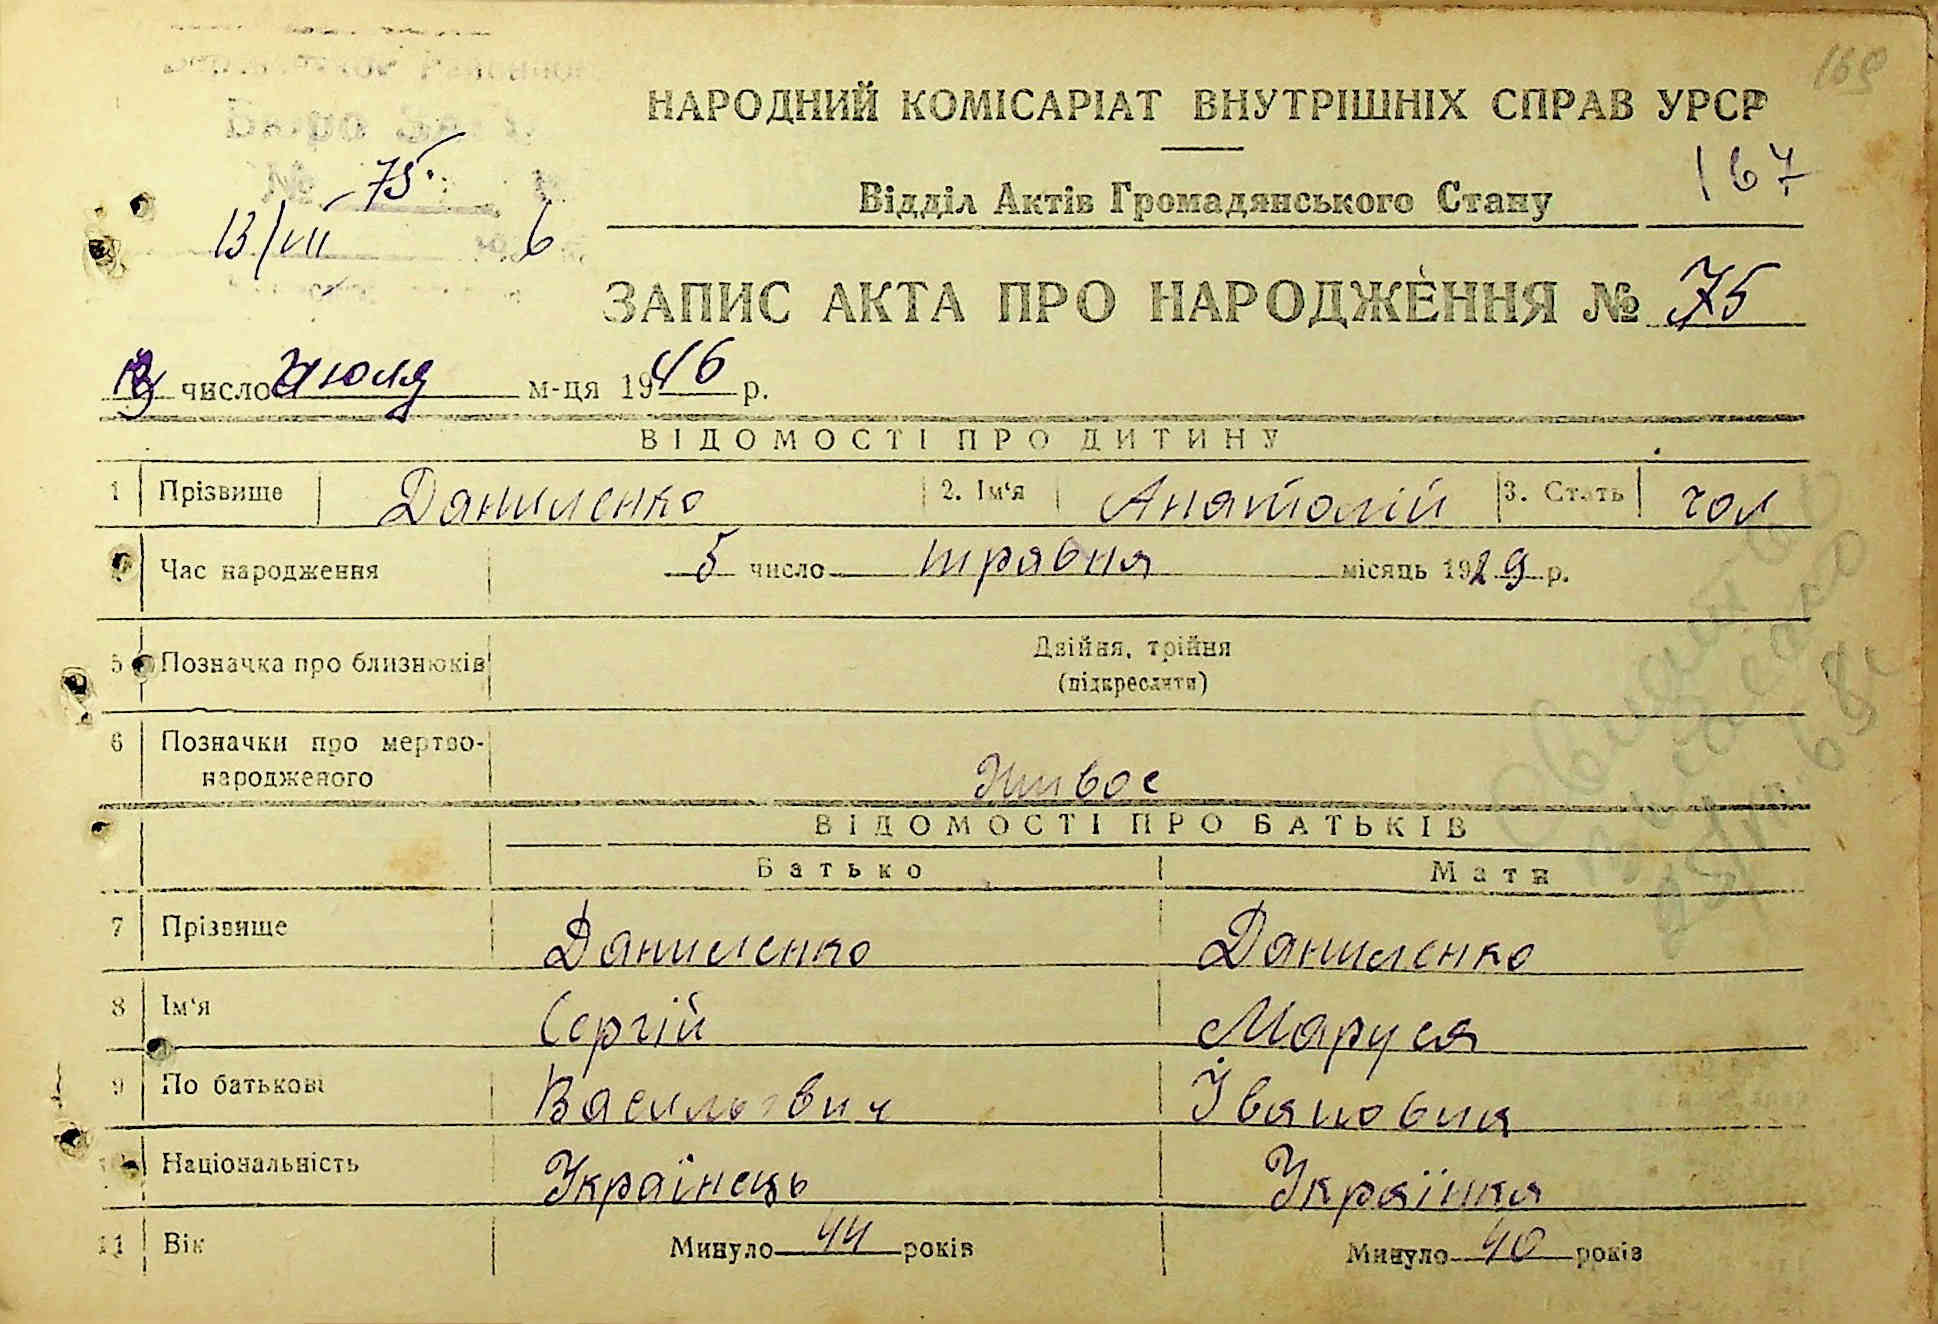 169
НАРОДНИЙ КОМІСАРІАТ ВНУТРІШНІХ СПРАВ УРСР
167
Відділ Актів Громадянського Стану
Бюро
№ 75
13/VII 6
ЗАПИС АКТА ПРО НАРОДЖЕННЯ № 75
13 число Июля м-ця 1946 р.
ВІДОМОСТІ ПРО ДИТИНУ
1 Прізвище Даниленко 2. Ім'я Анатолій 3. Стать чол
Час народження 5 число травня місяць 1929 р.
5 Позначка про близнюків Двійня, трійня
(підкреслити)
6 Позначки про мертво-
народженого Живое
ВІДОМОСТІ ПРО БАТЬКІВ
Батько Мати
7 Прізвище Даниленко Даниленко
8 Ім'я Сергій Маруся
9 По батькові Васильевич Івановна
10 Національність Українець Українка
11 Вік Минуло 44 років Минуло 40 років